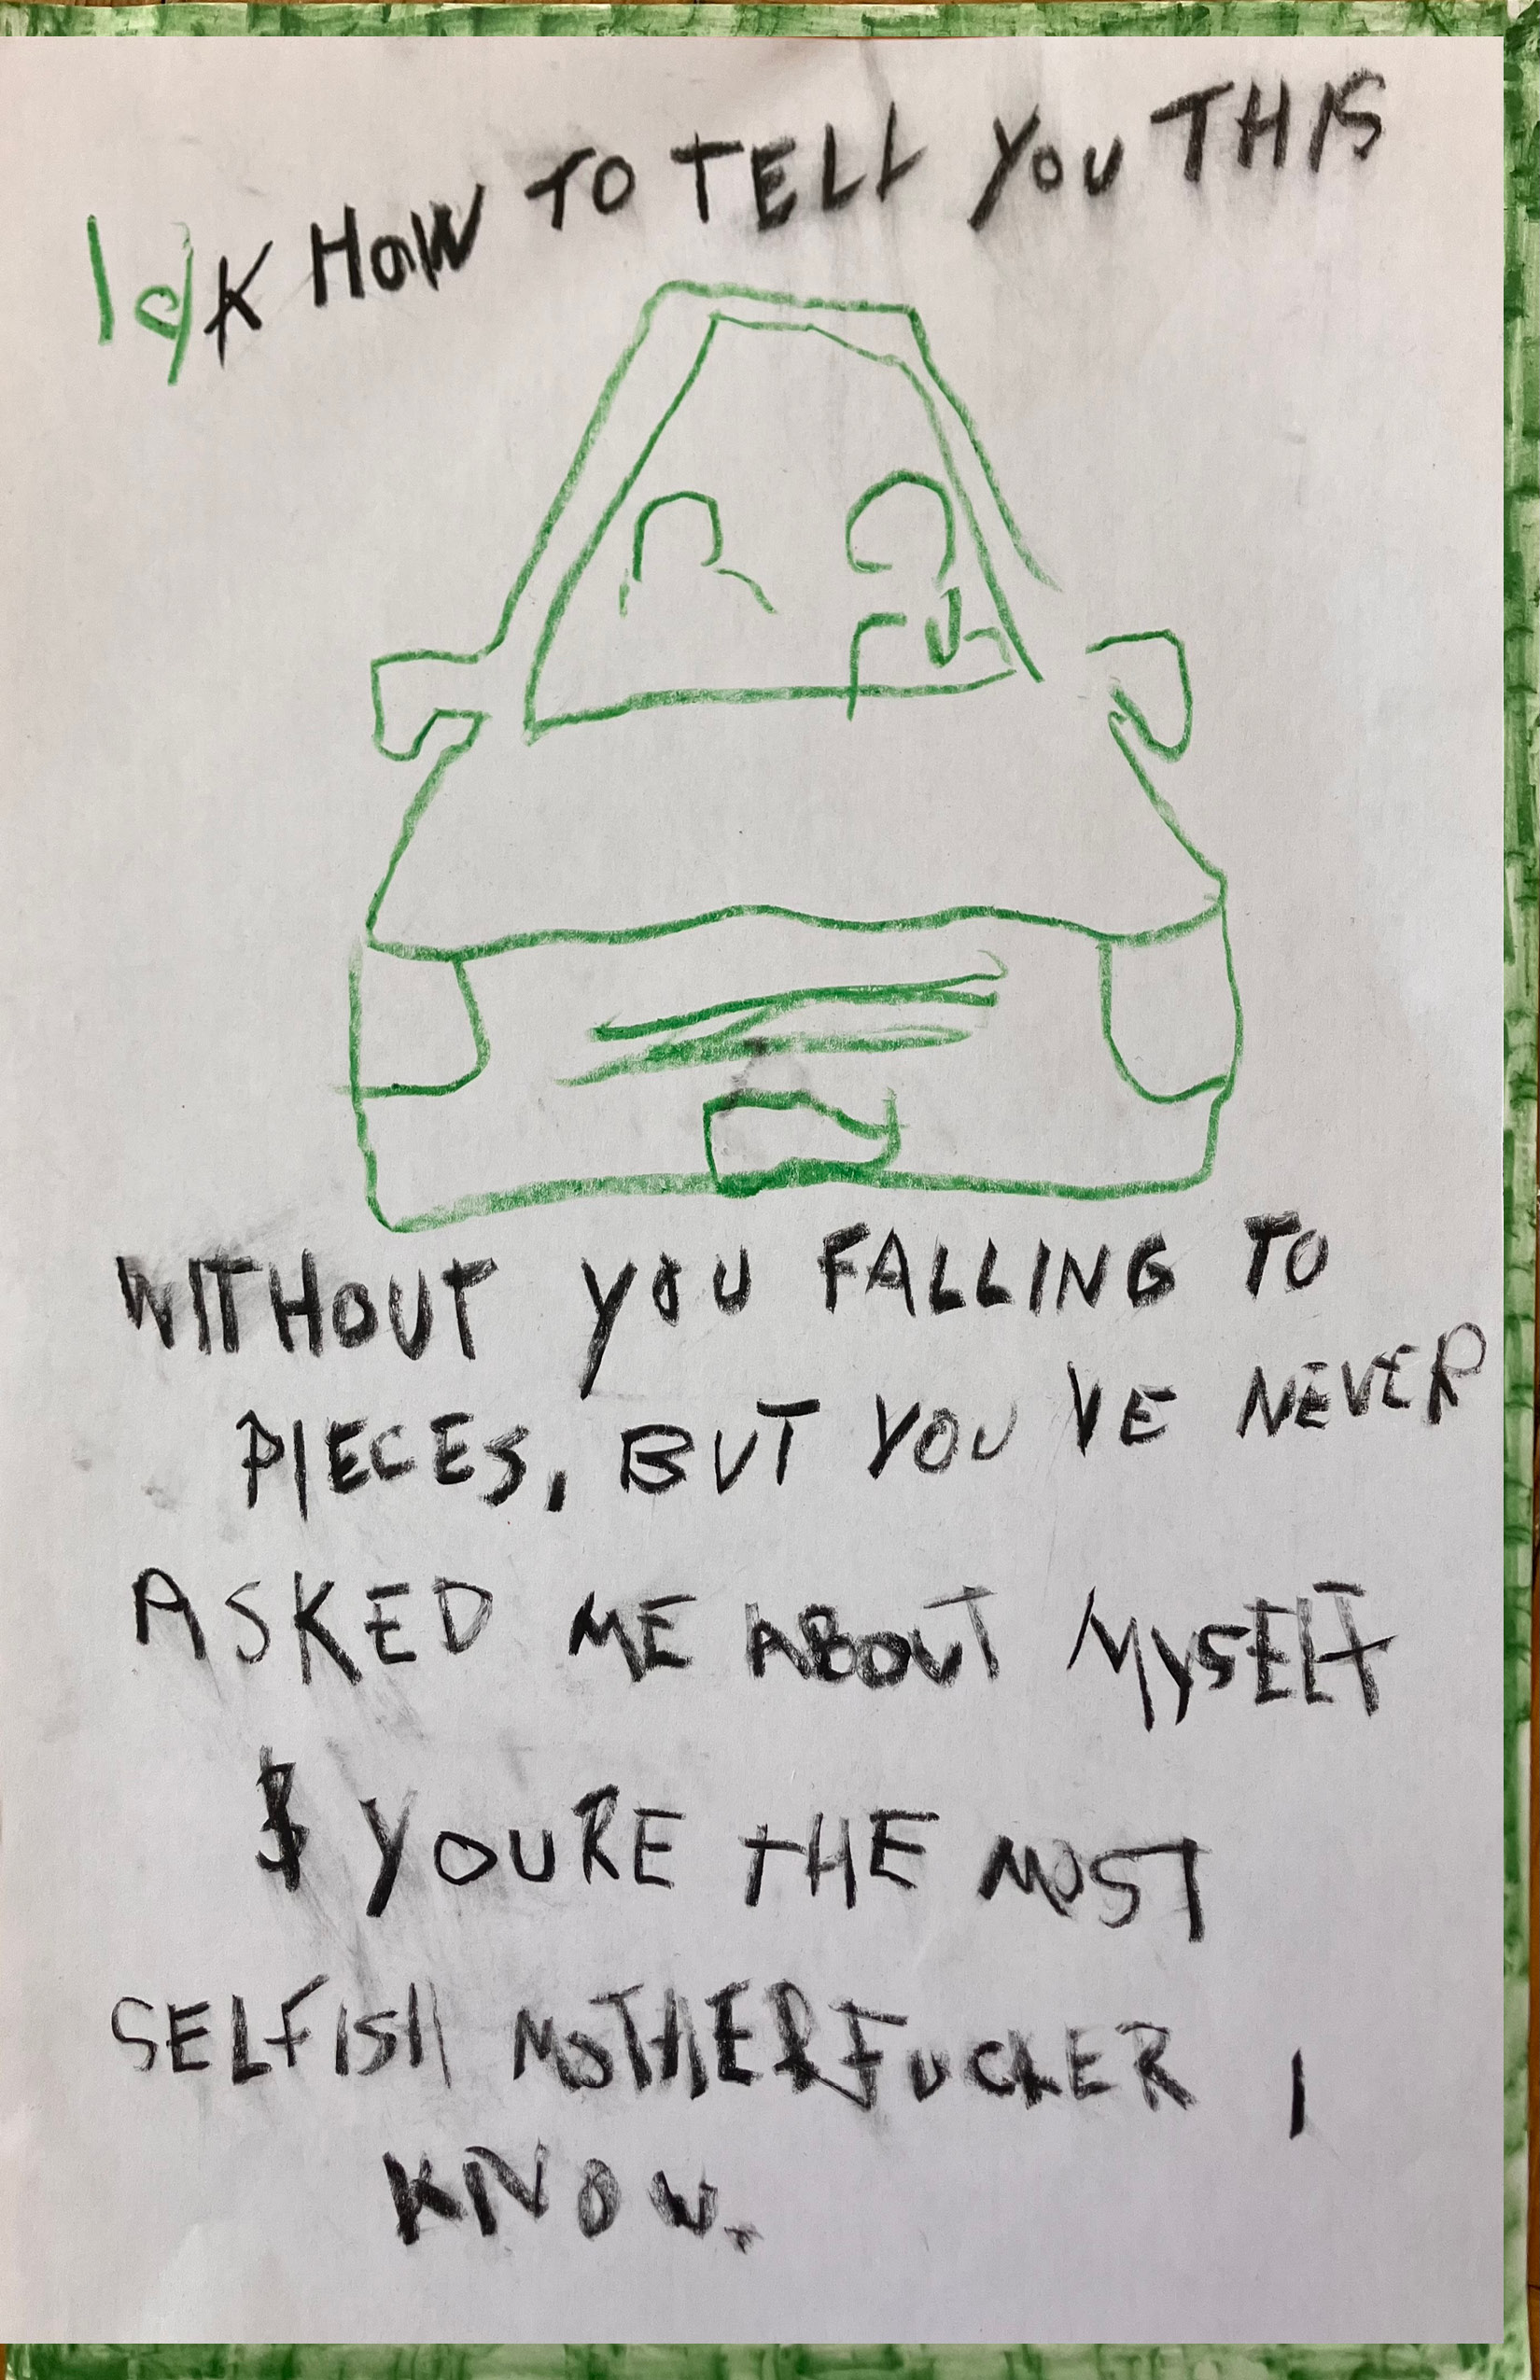 Idk HOW TO TELL YOU THIS
WITHOUT YOU FALLING TO
PIECES, BUT YOU'VE NEVER
ASKED ME ABOUT MYSELF
$ YOURE THE MOST
SELFISH MOTHERFUCKER I
KNOW.